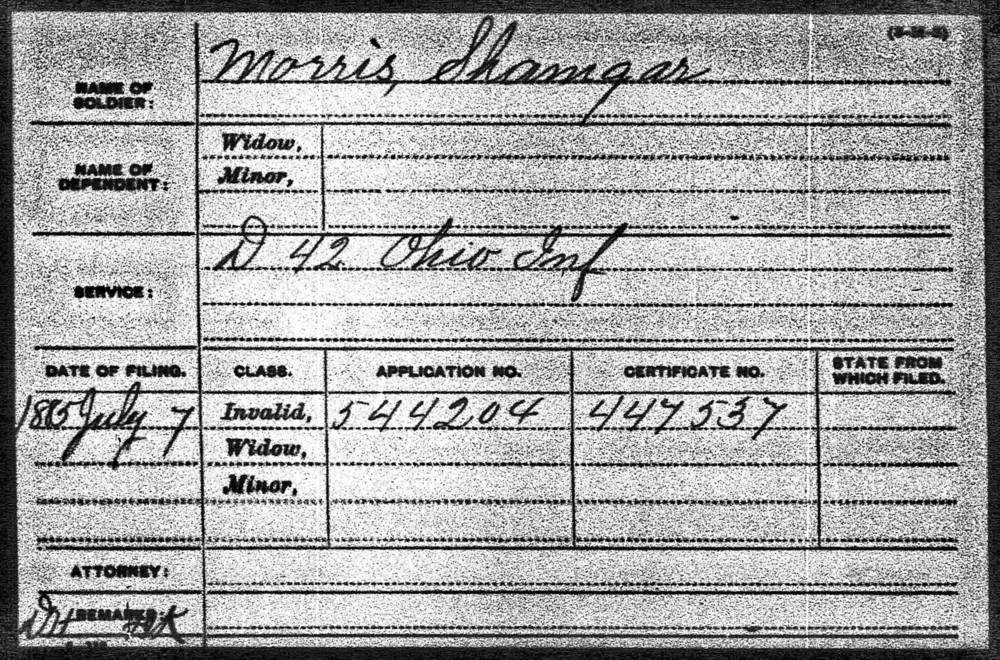 (3-14-2)
NAME OF SOLDIER: Morris, Shamgar
NAME OF DEPENDENT: Widow,
Minor,
SERVICE: D 42 Ohio Inf
DATE OF FILING. CLASS. APPLICATION NO. CERTIFICATE NO. STATE FROM WHICH FILED.
1885 July 7 Invalid, 544204 447537
Widow,
Minor,
ATTORNEY:
REMARKS: